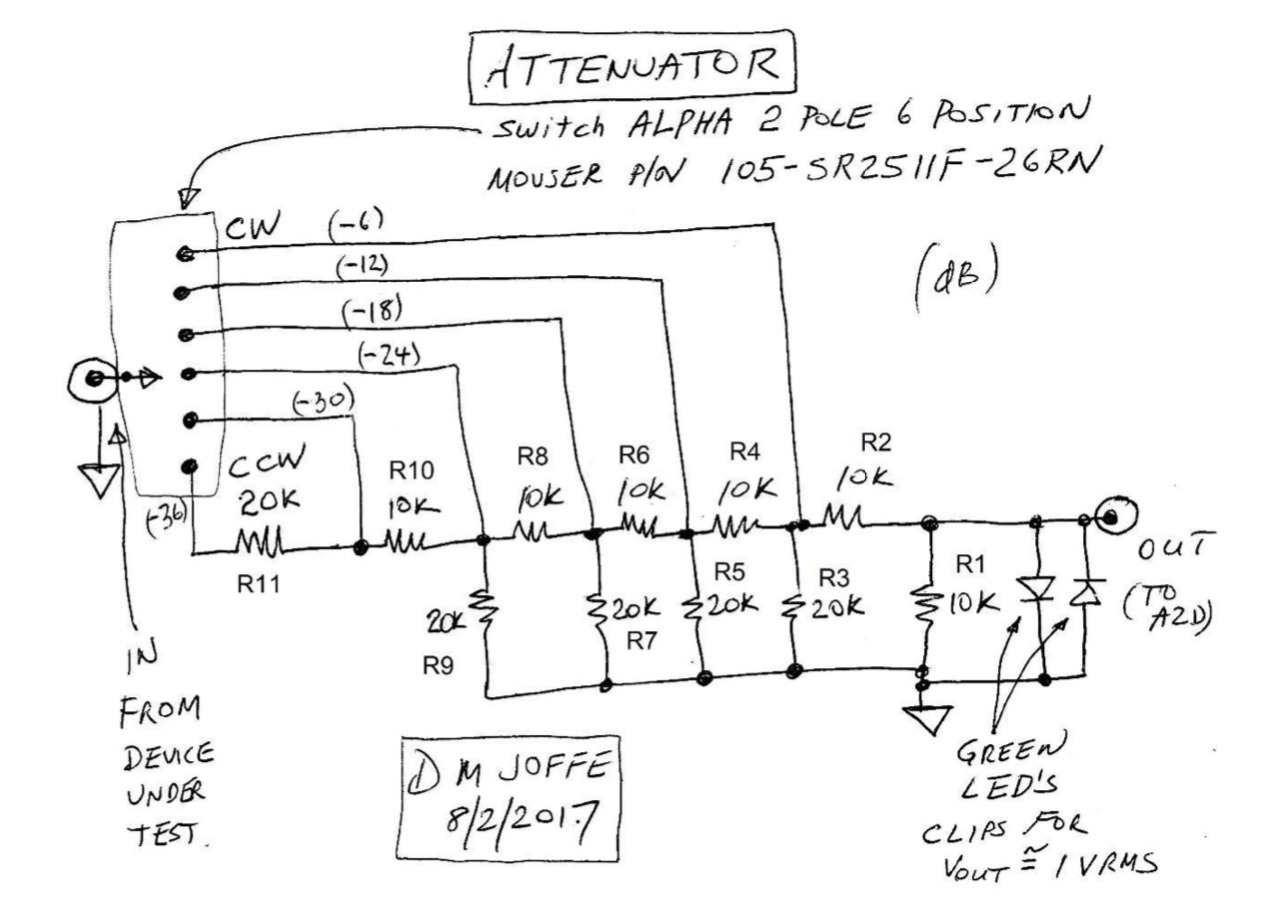 ATTENUATOR
switch ALPHA 2 POLE 6 POSITION
MOUSER P/N 105-SR2511F-26RN
CW
(-6)
(dB)
(-12)
(-18)
(-24)
(-30)
CCW
(-36)
20K
R11
R10
10K
R8
10K
R6
10K
R4
10K
R2
10K
20K
R9
20K
R7
R5
20K
R3
20K
R1
10K
OUT
(TO
A2D)
IN
FROM
DEVICE
UNDER
TEST.
D M JOFFE
8/2/2017
GREEN
LED'S
CLIPS FOR
VOUT ≅ 1 VRMS